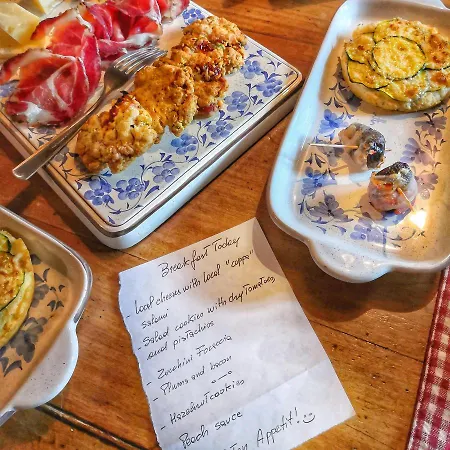 Breakfast Today
- Local cheeses with local "coppa"
salami
- Salad cookies with dry Tomatoes
and pistachios
- Zucchini Focaccia
- Plums and bacon
- Hazelnut cookies
Peach sauce
Appetit! :)